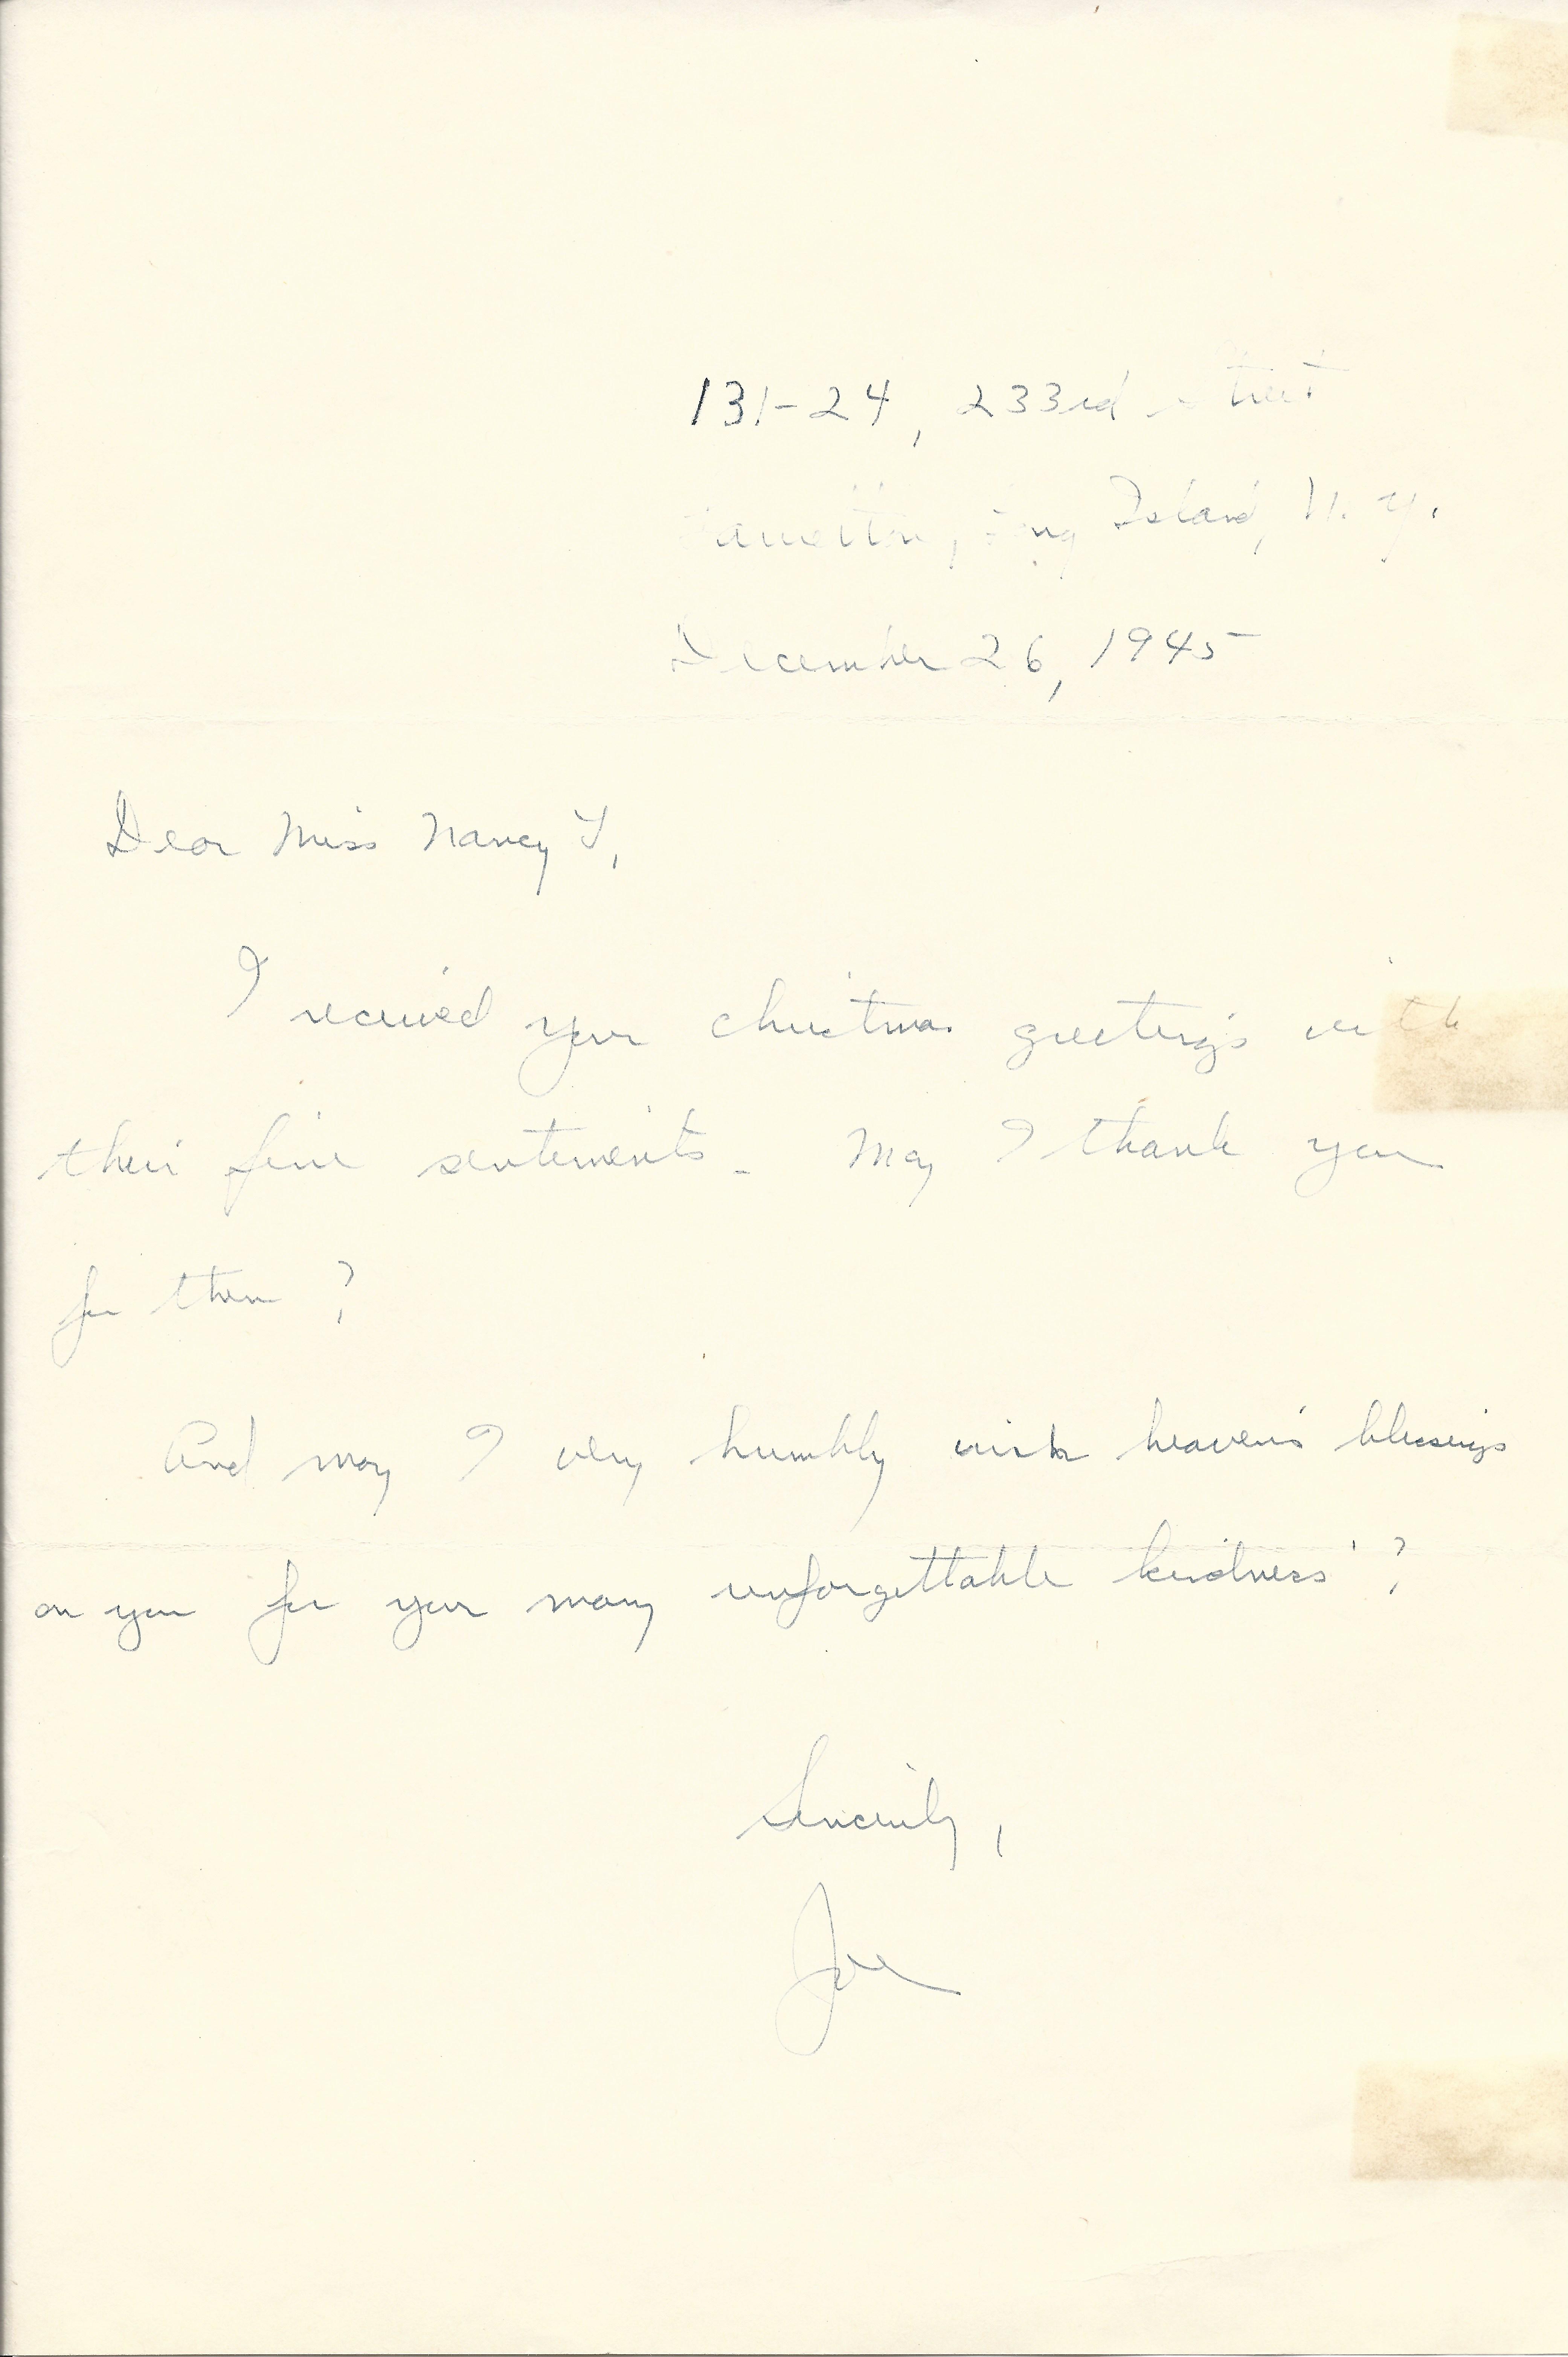 131-24, 233rd street
Laurelton, Long Island, N. Y.
December 26, 1945
Dear Miss Nancy Y,
I received your christmas greetings with
their fine sentiments. May I thank you
for them ?
And may I very humbly wish heaven's blessings
on you for your many unforgettable kindness' ?
Sincerely,
Joe